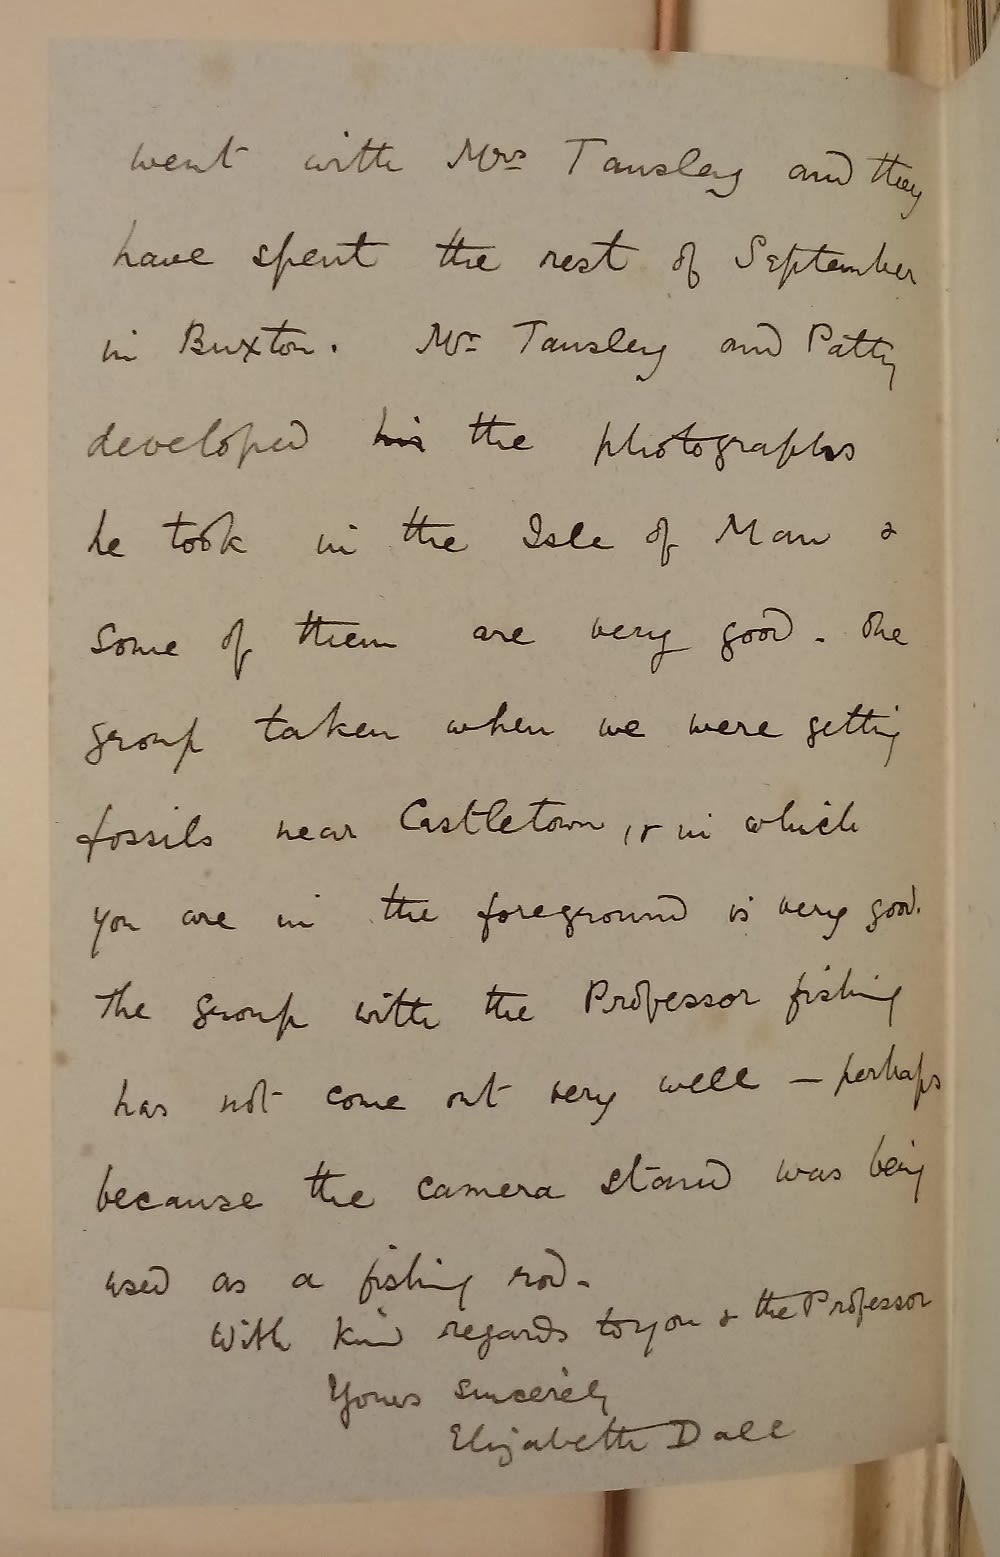 went with Mrs Tansley and they
have spent the rest of September
in Buxton. Mr Tansley and Patty
developed his the photographs
he took in the Isle of Man &
some of them are very good. One
group taken when we were getting
fossils near Castletown, & in which
you are in the foreground is very good.
The group with the Professor fishing
has not come out very well — perhaps
because the camera stand was being
used as a fishing rod.
With kind regards to you & the Professor
Yours sincerely
Elizabeth Dale